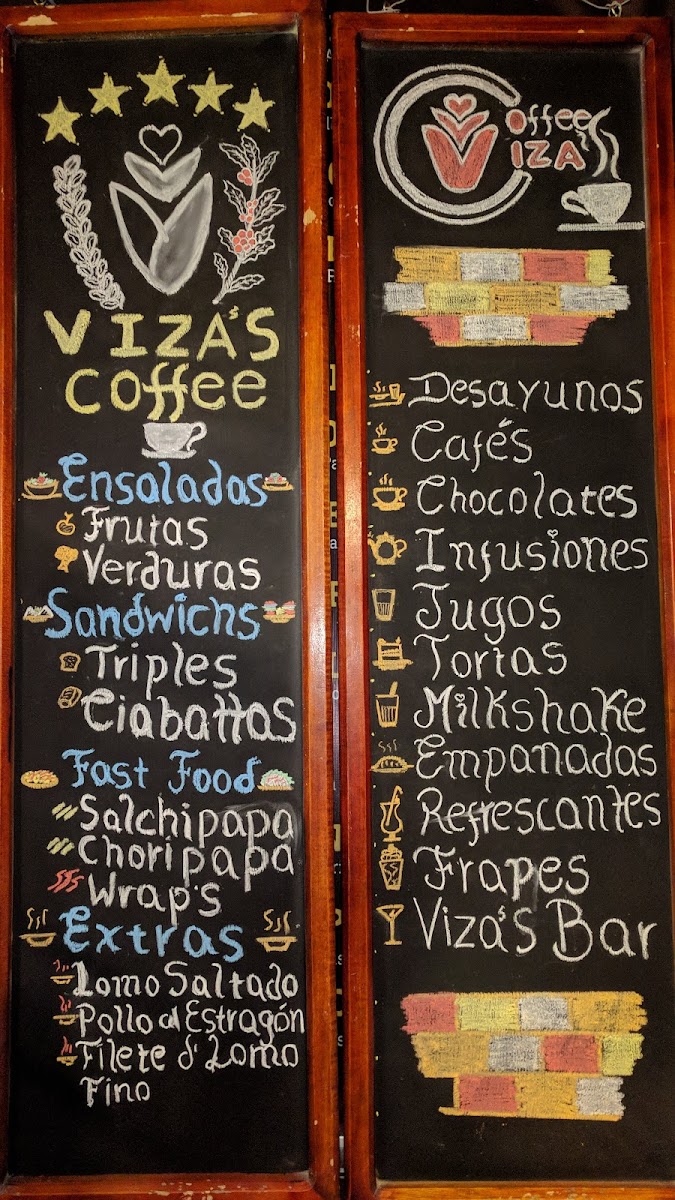 VIZA'S
Coffee
Ensaladas
Frutas
Verduras
Sandwichs
Triples
Ciabattas
Fast Food
Salchipapa
Choripapa
Wrap's
Extras
Lomo Saltado
Pollo al Estragón
Filete d' Lomo
Fino
Coffee
VIZA'S
Desayunos
Cafés
Chocolates
Infusiones
Jugos
Tortas
Milkshake
Empanadas
Refrescantes
Frapes
Viza's Bar